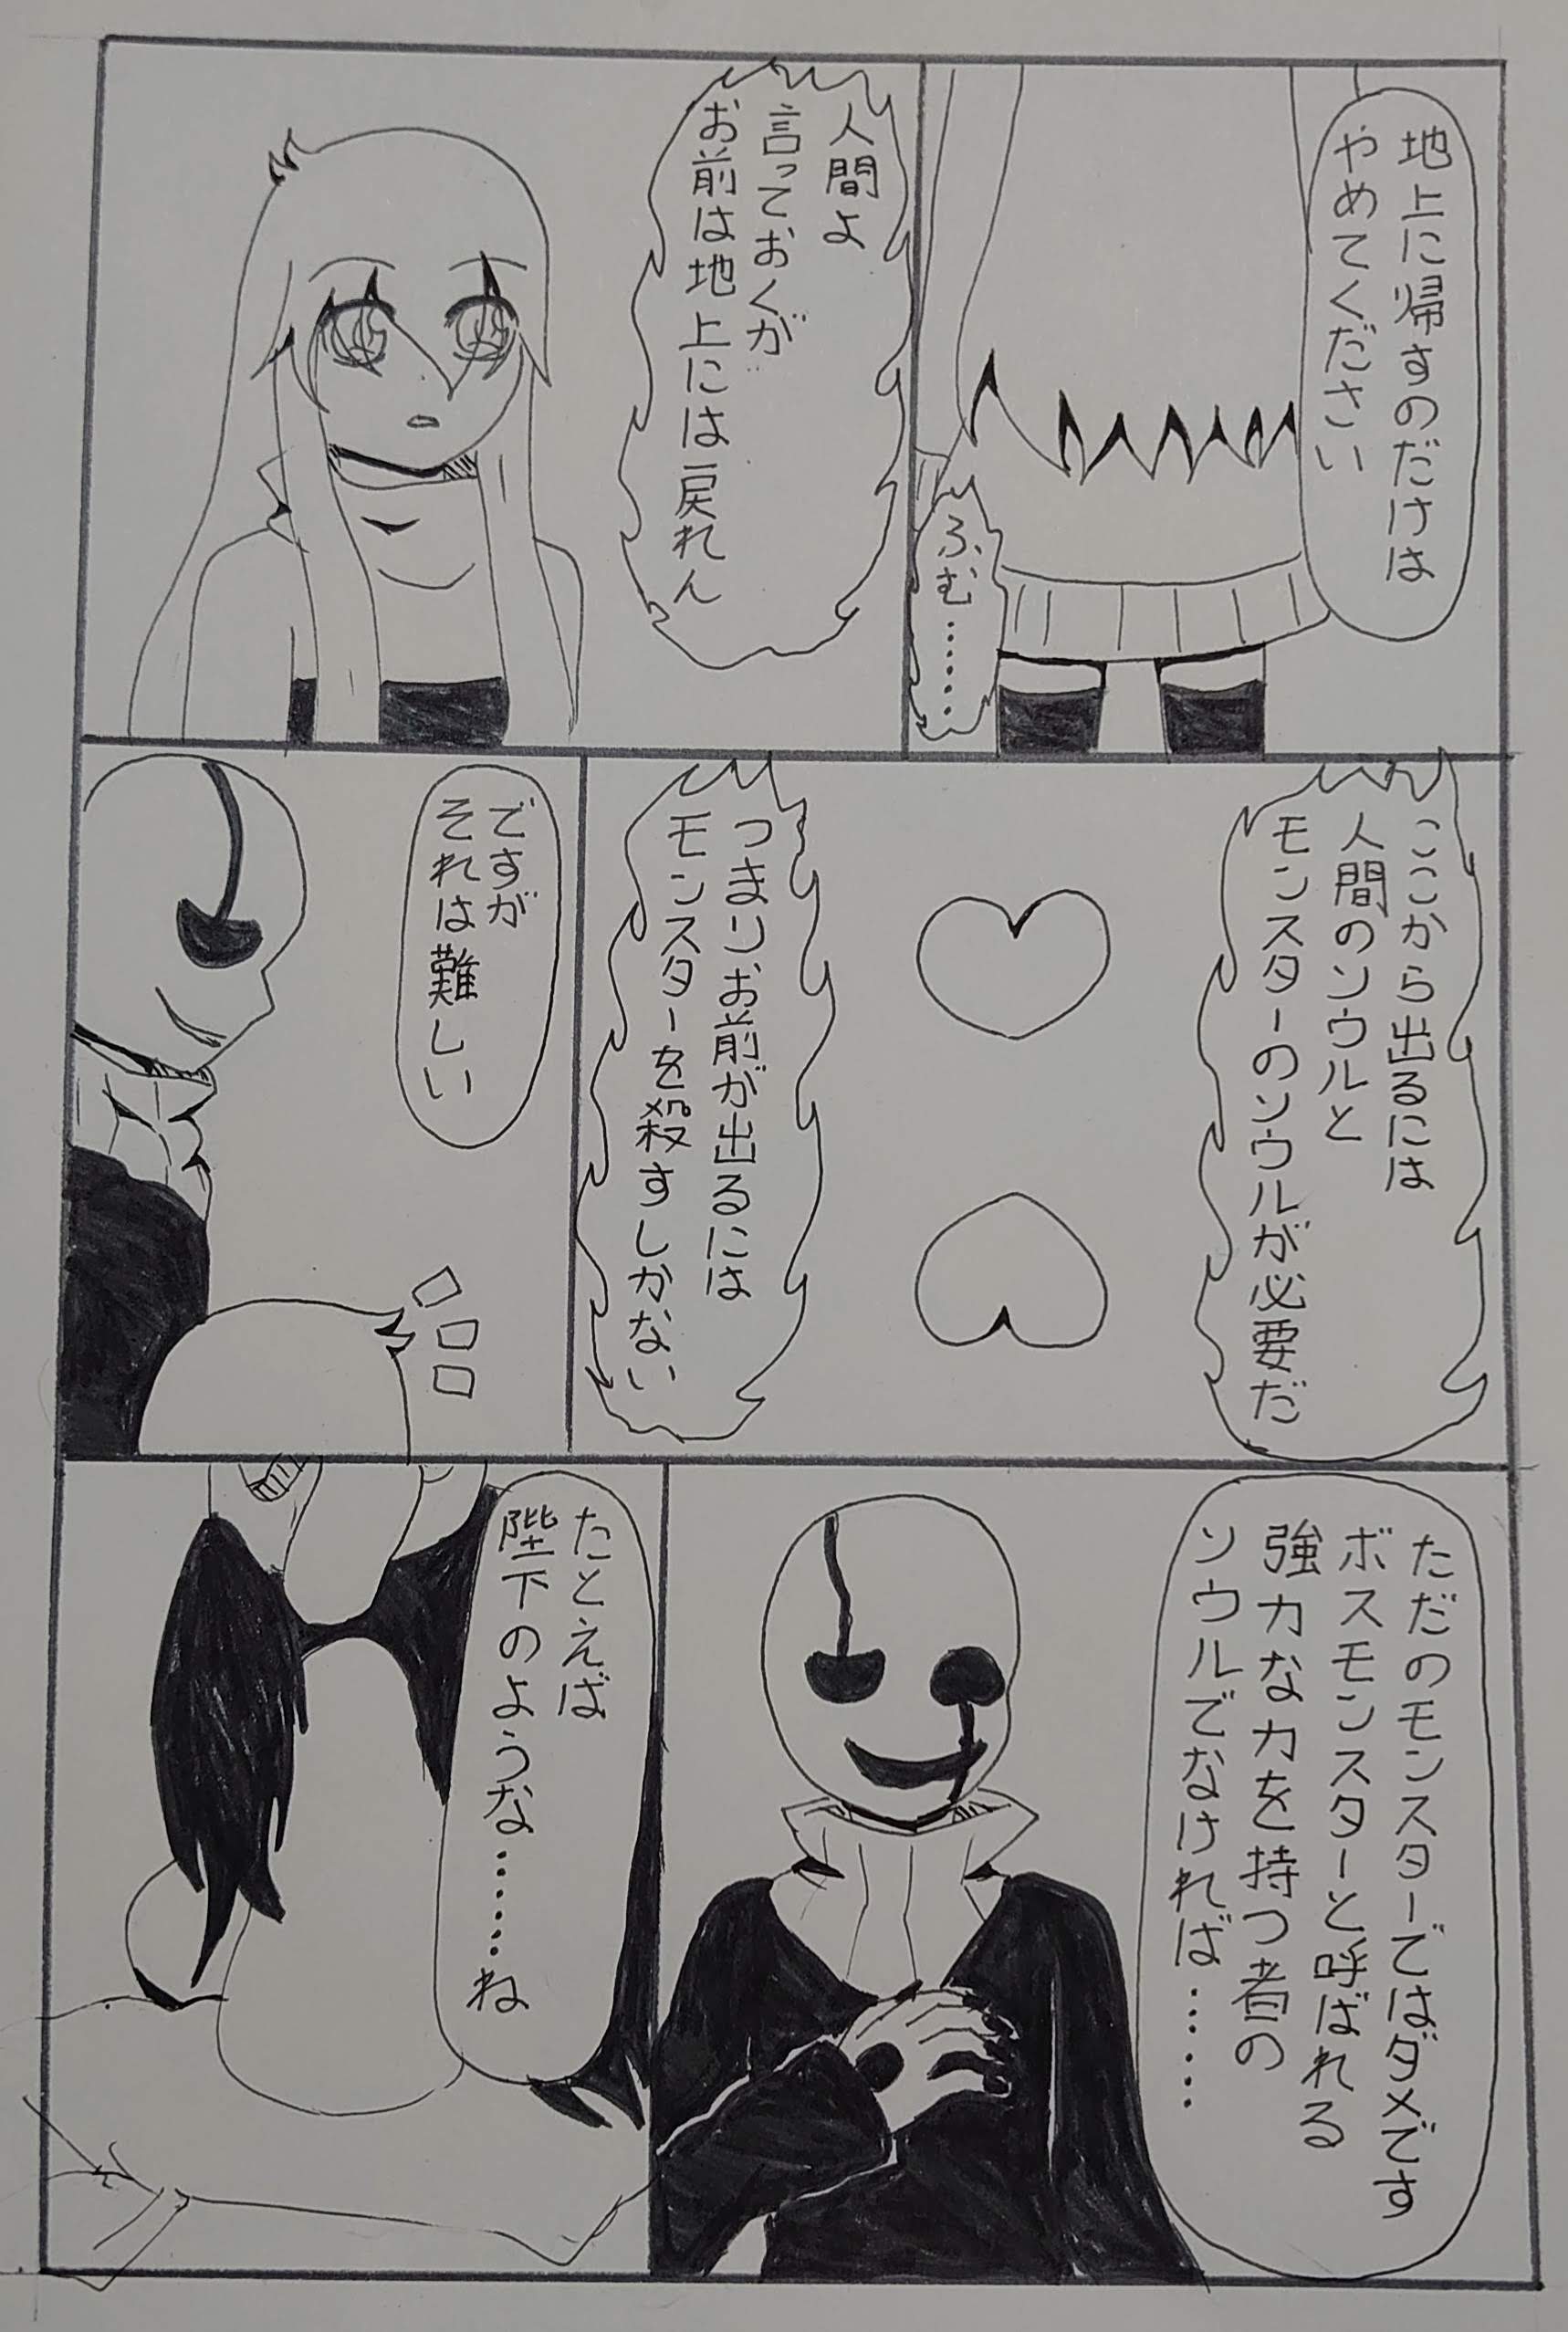 地上に帰すのだけは
やめてください
ふむ………
人間よ
言っておくが
お前は地上には戻れん
ここから出るには
人間のソウルと
モンスターのソウルが必要だ
つまりお前が出るには
モンスターを殺すしかない
ですが
それは難しい
ただのモンスターではダメです
ボスモンスターと呼ばれる
強力な力を持つ者の
ソウルでなければ……
たとえば
陛下のような………ね